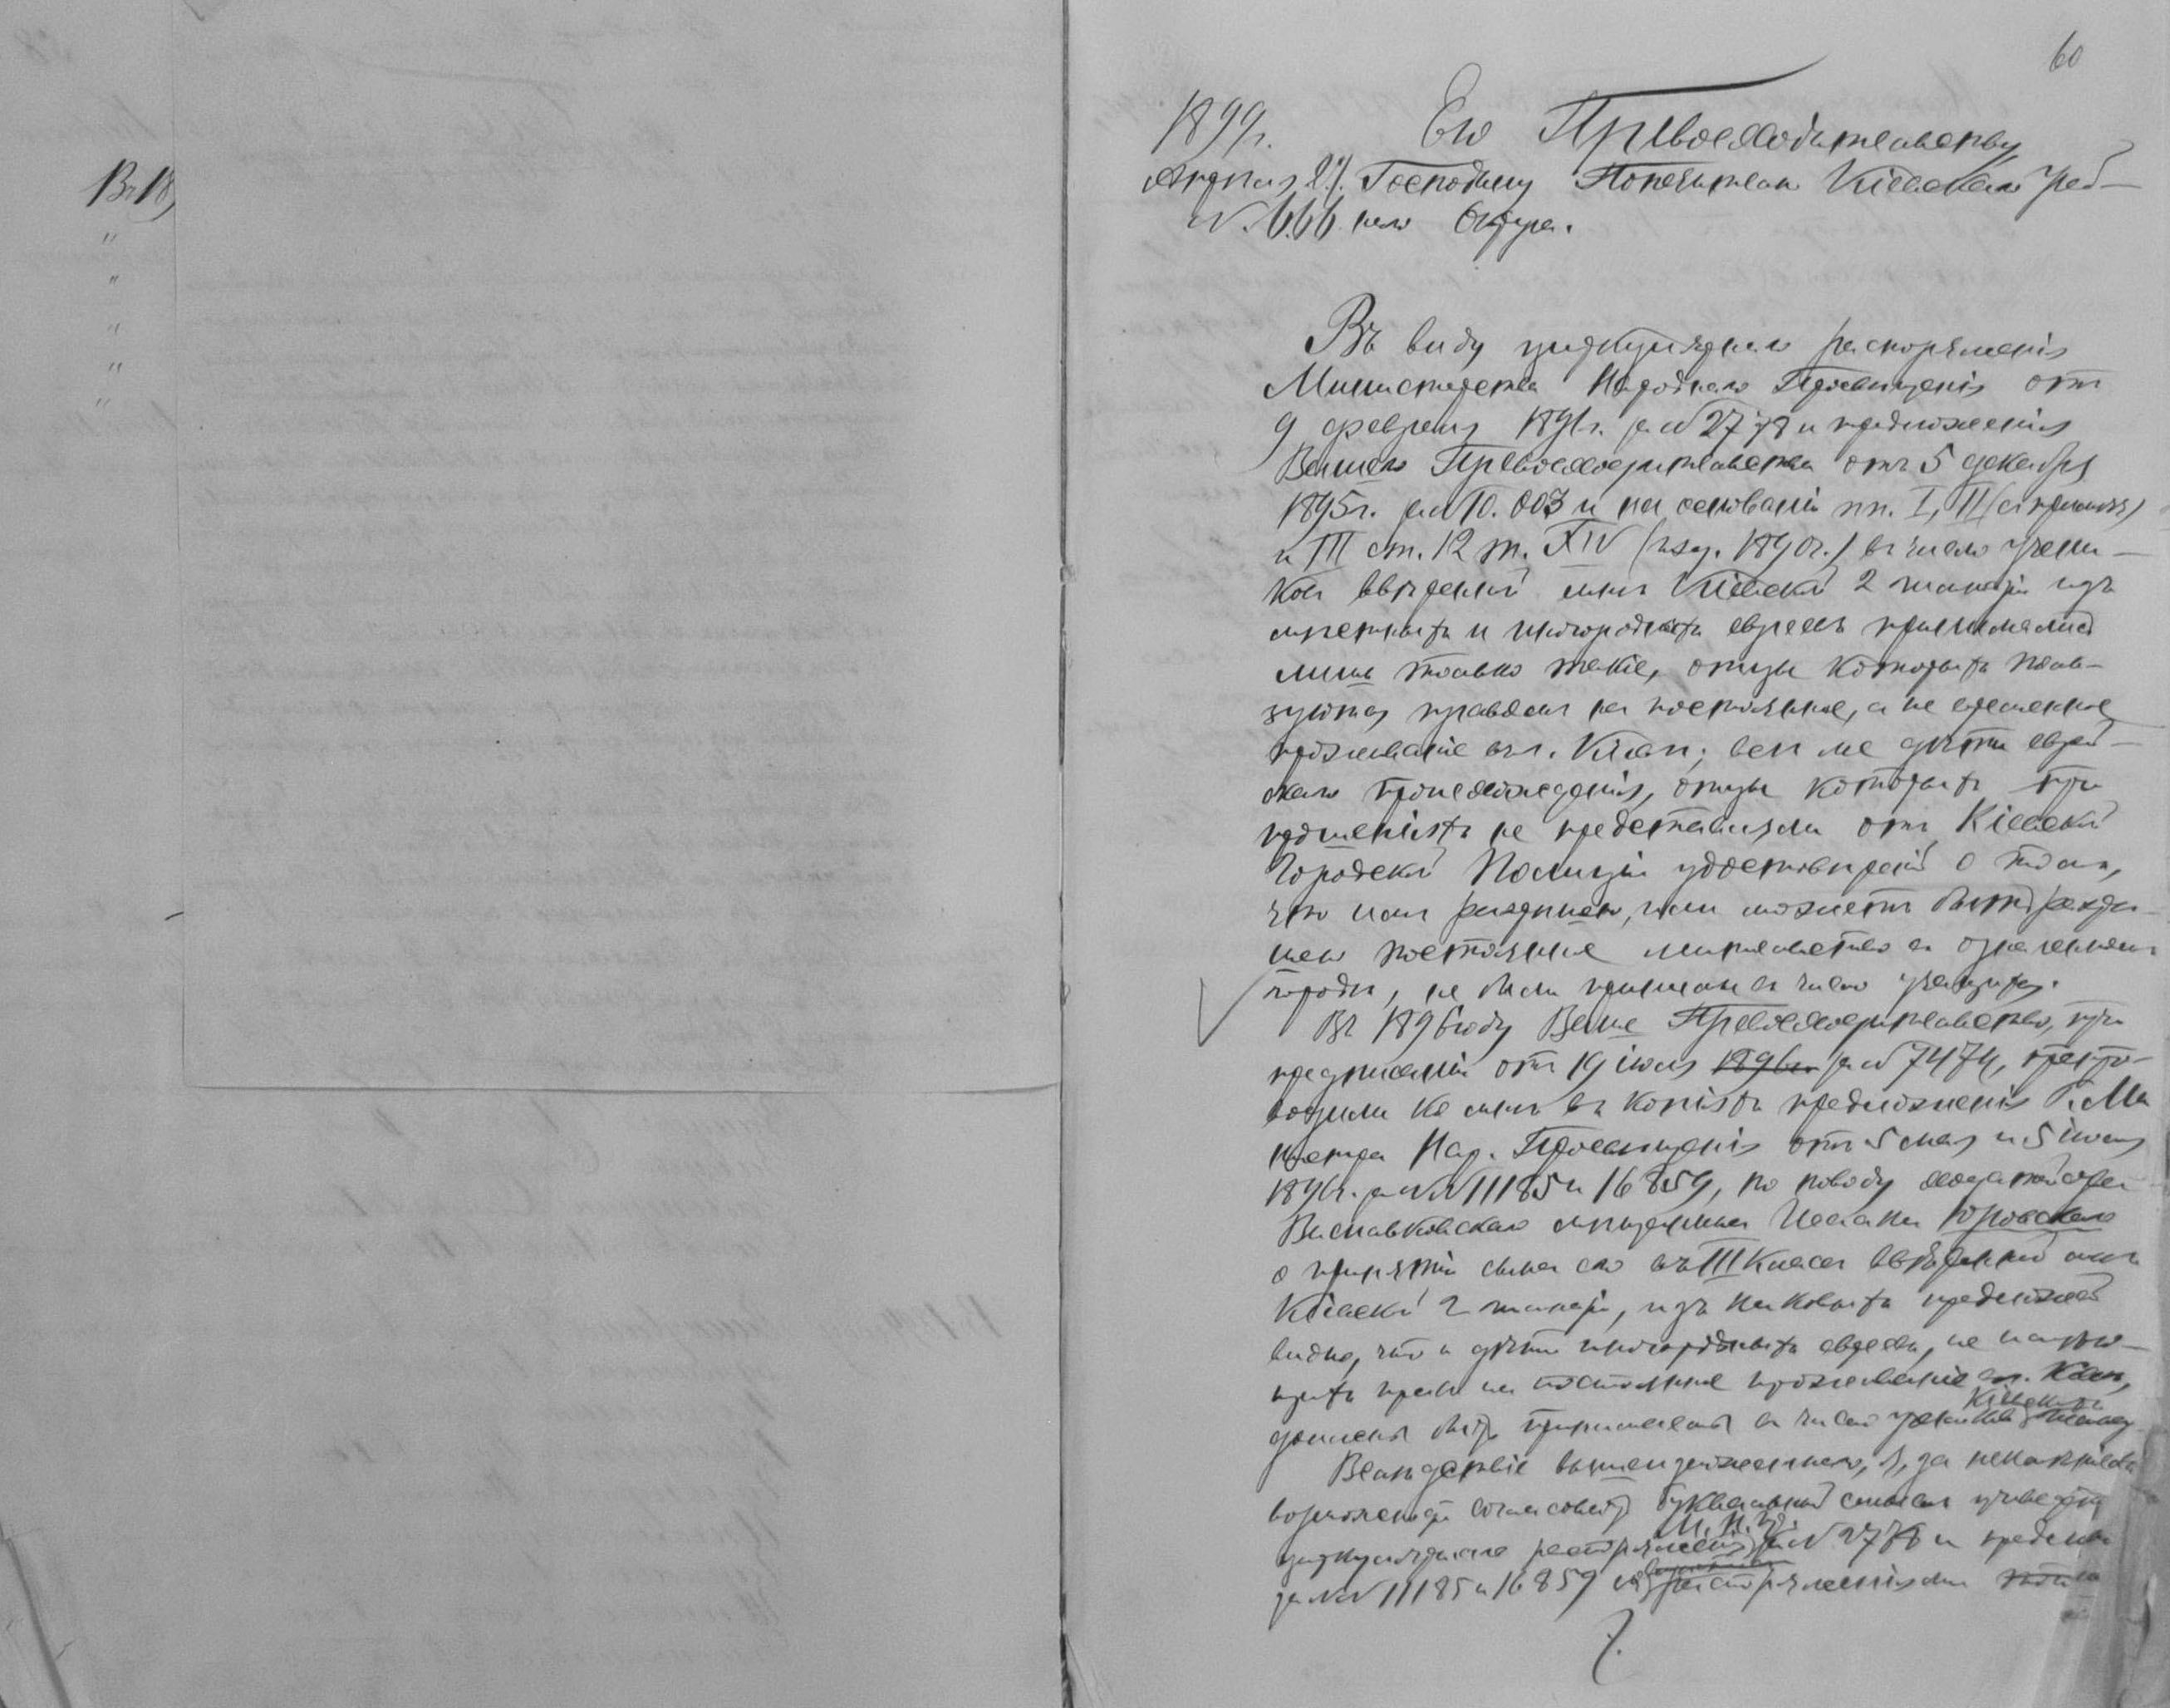 60
1899г.
Его Превосходительству
Августа 27. Господину Попечителю Кіевскаго Учеб-
N. 666 наго Округа.
Въ 18
"
"
"
"
"
Въ виду циркулярнаго распоряженія
Министерства Народнаго Просвѣщенія отъ
9 февраля 1891г. за N 2778 и предложенія
Вашего Превосходительства отъ 5 декабря
1895г. за N 10.003 и на основаніи пп. I, II (съ примѣч.)
и III ст. 12 т. XIV (изд. 1890г.) въ число учени-
ковъ ввѣренной мнѣ Кіевской 2 гимназіи изъ
мѣстныхъ и иногороднихъ евреевъ принимались
лишь только такіе, отцы которыхъ поль-
зуются правомъ на постоянное, а не временное
проживаніе въ г. Кіевѣ; всѣ же дѣти еврей-
скаго происхожденія, отцы которыхъ при
прошеніяхъ не представляли отъ Кіевской
Городской Полиціи удостовѣреній о томъ,
что имъ разрѣшено, или можетъ быть разрѣ-
шено постоянное жительство въ означенномъ
городѣ, не были приняты въ число учащихся.
Въ 1896 году Ваше Превосходительство, при
предписаніи отъ 19 іюля 1896г. за N 7474, препро-
водили ко мнѣ въ копіяхъ предложенія Г. Ми
нистра Нар. Просвѣщенія отъ 5 мая и 5 іюля
1896г. за NN 11185 и 16859, по поводу ходатайства
мѣщанина Юровскаго
о принятіи сына его въ III классъ ввѣренной мнѣ
Кіевской 2 гимназіи, изъ каковыхъ предложеній
видно, что и дѣти иногороднихъ евреевъ, не имѣю-
щихъ права на постоянное проживаніе въ г. Кіевѣ,
Кіевскихъ
должны быть принимаемы въ число учениковъ гимназ
Вслѣдствіе вышеизложеннаго, я, за неимѣніемъ
возможности согласовать буквальный смыслъ
М. Н. Пр.
циркулярнаго распоряженія за N 2778 и предлож
за NN 11185 и 16859 съ распоряженіями